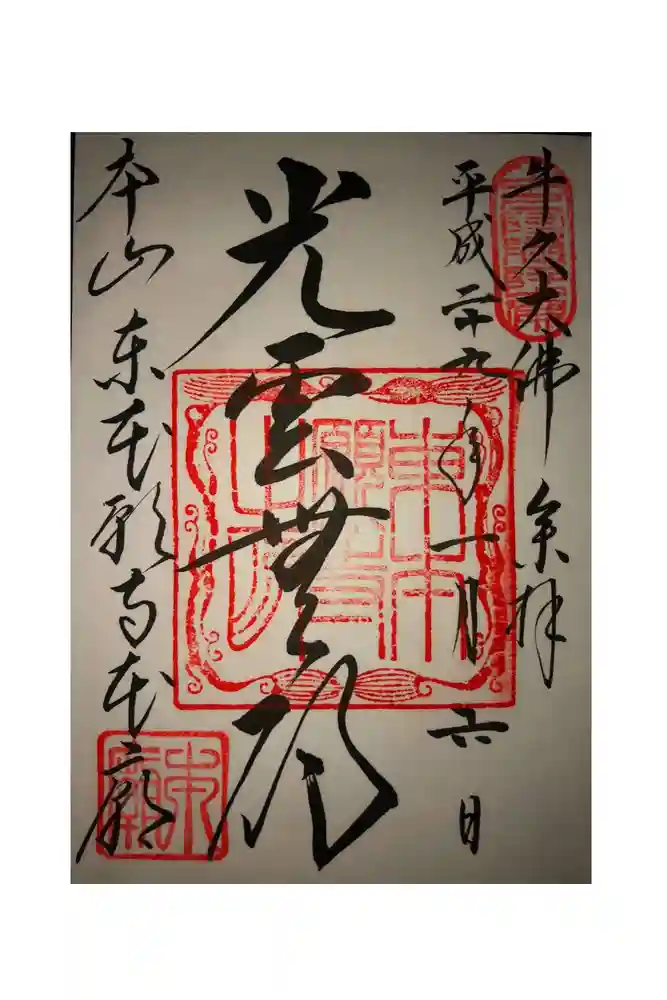 牛久大佛 参拝
平成二十九年一月六日
光雲無碍
本山東本願寺本廟
東本願寺